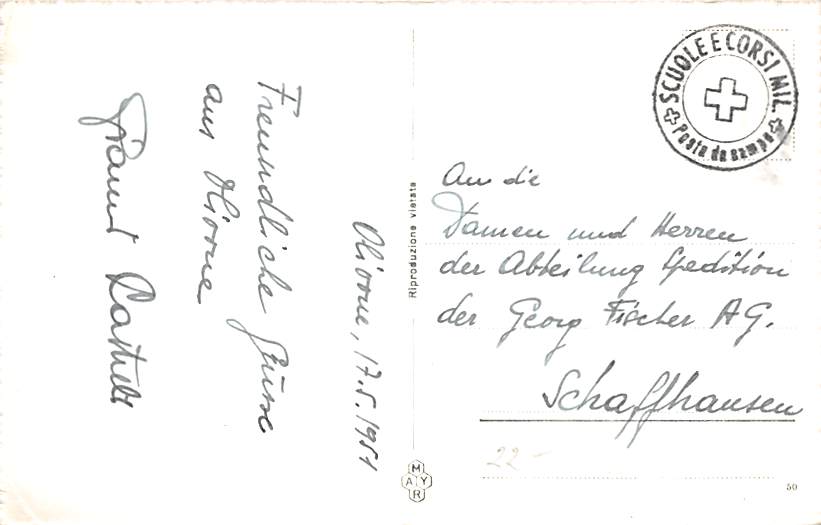 Olivone, 17.5.1951
Freundliche Grüsse
aus Olivone
SCUOLE E CORSI MIL.
Posta da campo
An die
Damen und Herren
der Abteilung Spedition
der Georg Fischer AG.
Schaffhausen
22.-
Riproduzione vietata
MAYR
50